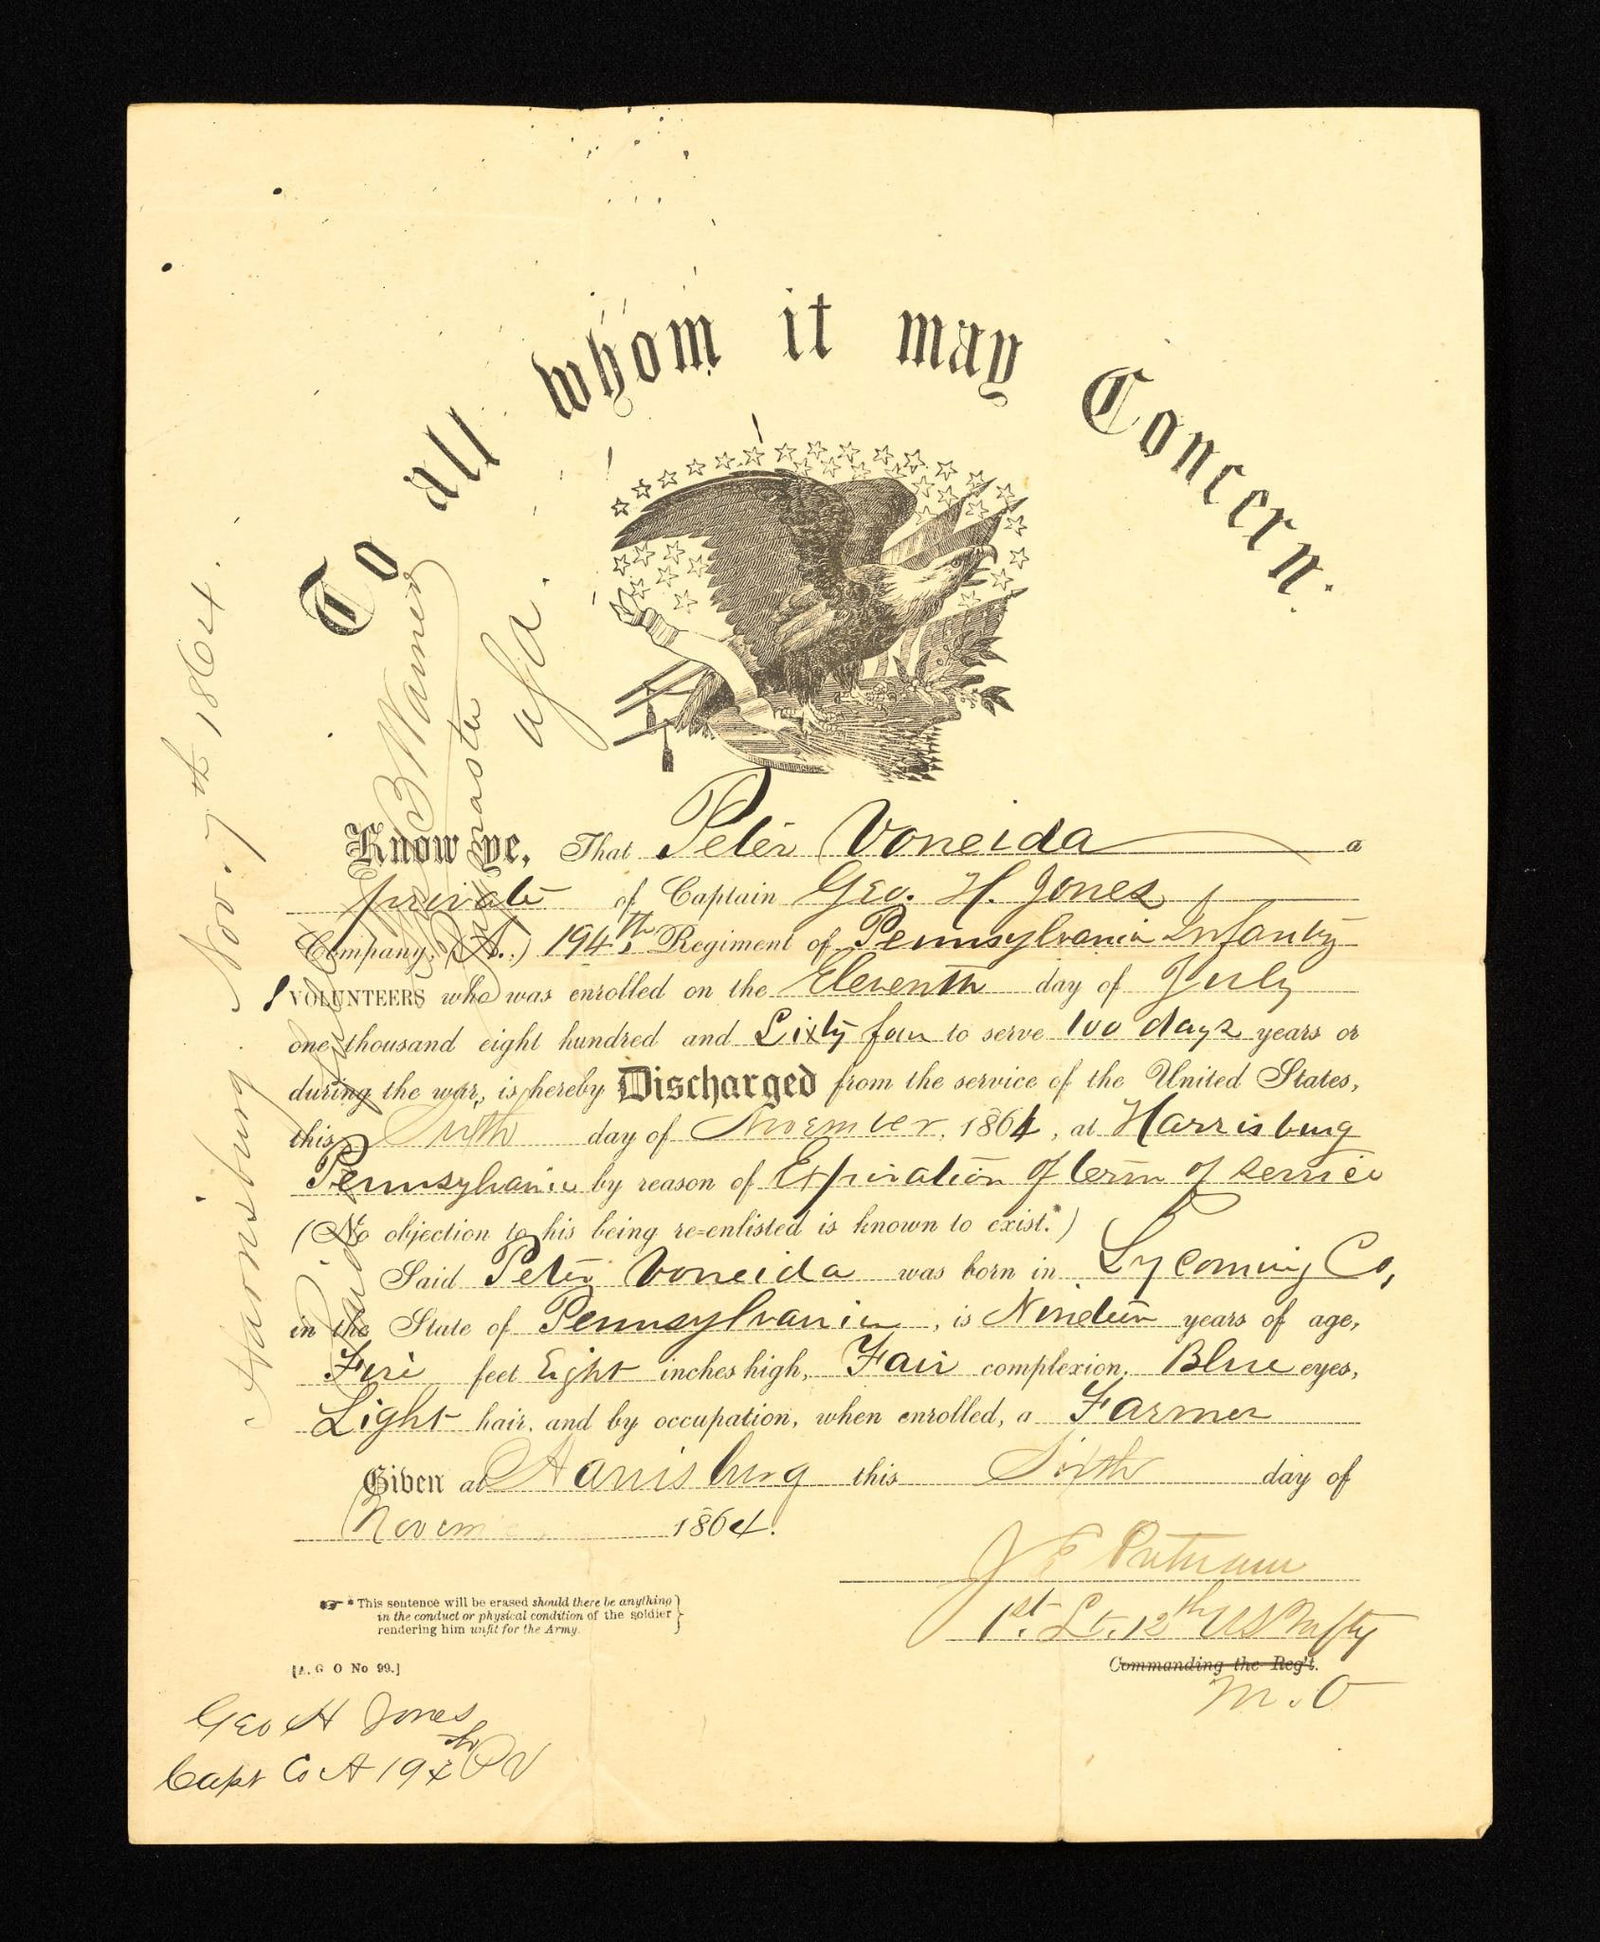 To all whom it may Concern.
Know ye, That Peter Voneida a
private of Captain Geo. H. Jones
Company, (A.) 194th Regiment of Pennsylvania Infantry
VOLUNTEERS who was enrolled on the Eleventh day of July
one thousand eight hundred and Sixty four to serve 100 days years or
during the war, is hereby Discharged from the service of the United States,
this Sixth day of November, 1864, at Harrisburg
Pennsylvania by reason of Expiration of term of service
(No objection to his being re-enlisted is known to exist.*)
Said Peter Voneida was born in Lycoming Co,
in the State of Pennsylvania, is Nineteen years of age,
Five feet Eight inches high, Fair complexion, Blue eyes,
Light hair, and by occupation, when enrolled, a Farmer
Given at Harrisburg this Sixth day of
Novem 1864.
J E Putnam
1st. Lt. 12th US Infty
Commanding the Reg't.
M. O
☞ * This sentence will be erased should there be anything
in the conduct or physical condition of the soldier
rendering him unfit for the Army.
[A. G O No 99.]
Geo H Jones
Capt Co A 194th P V
Harrisburg. Nov. 7th 1864.
Paid in full
B Warner
Paymaster
USA.